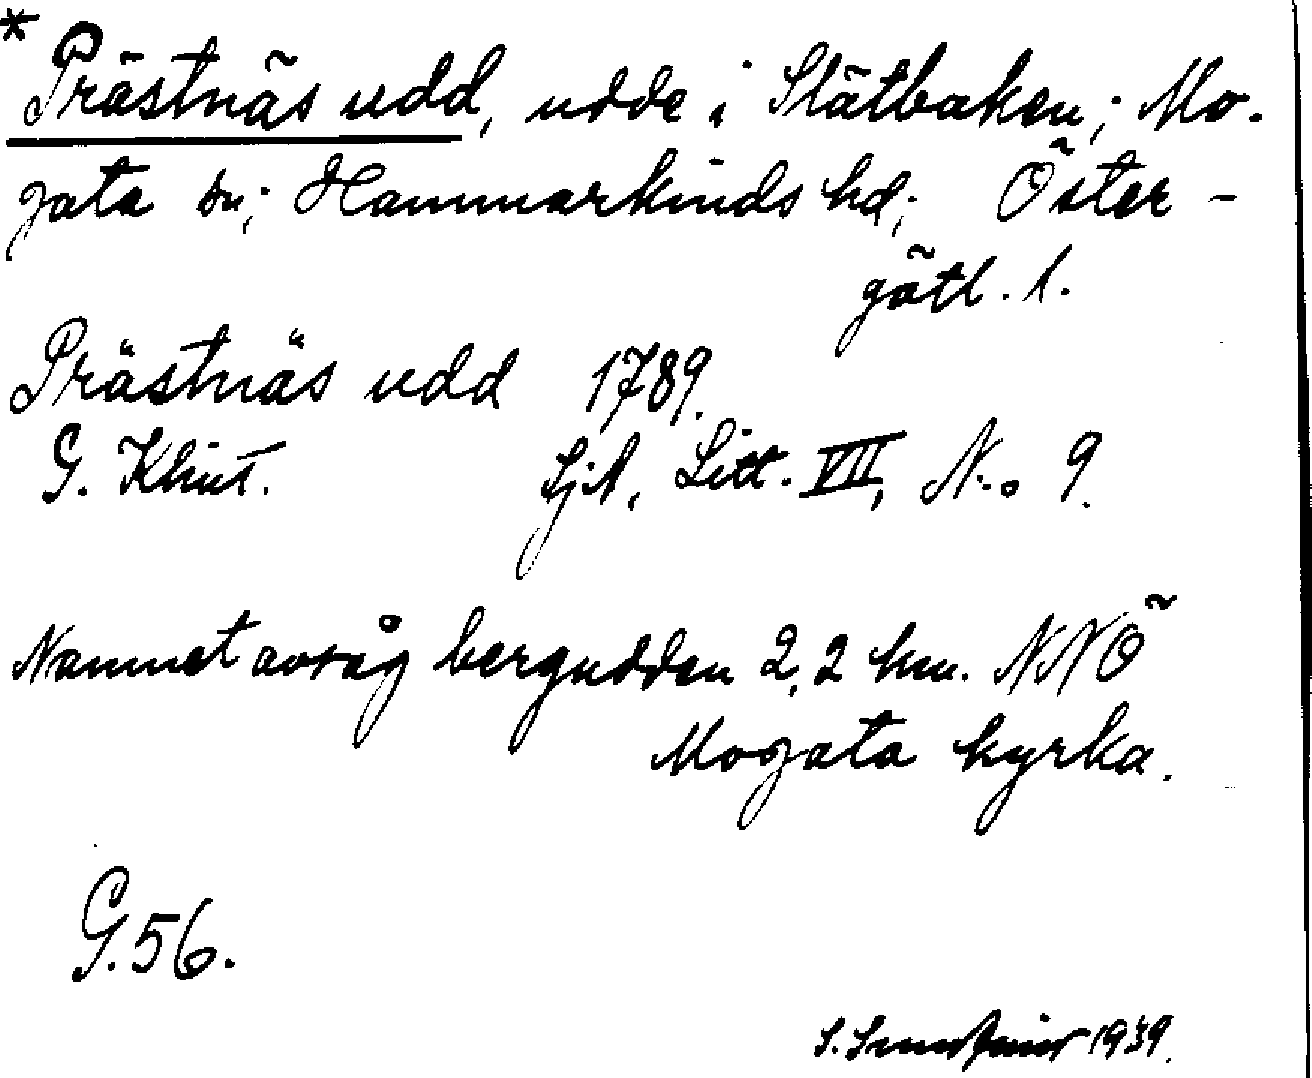 * Prästnäs udd, udde i Slätbaken; Mo-
gata sn; Hammarkinds hd; Öster-
götl. l.
Prästnäs udd 1789.
G. Klint. SjA, Litt. VII, N:o 9.
Namnet avsåg bergudden 2,2 km. NNÖ
Mogata kyrka.
G. 56.
S. 1939.